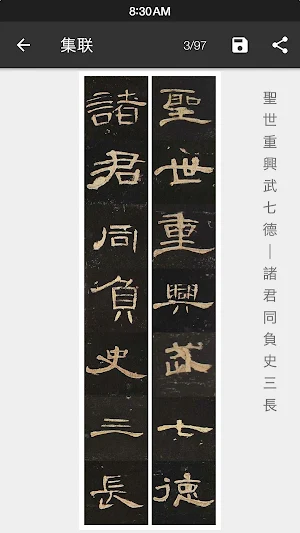 8:30AM
集联
3/97
聖世重興武七德
諸君同負史三長
聖世重興武七德—諸君同負史三長